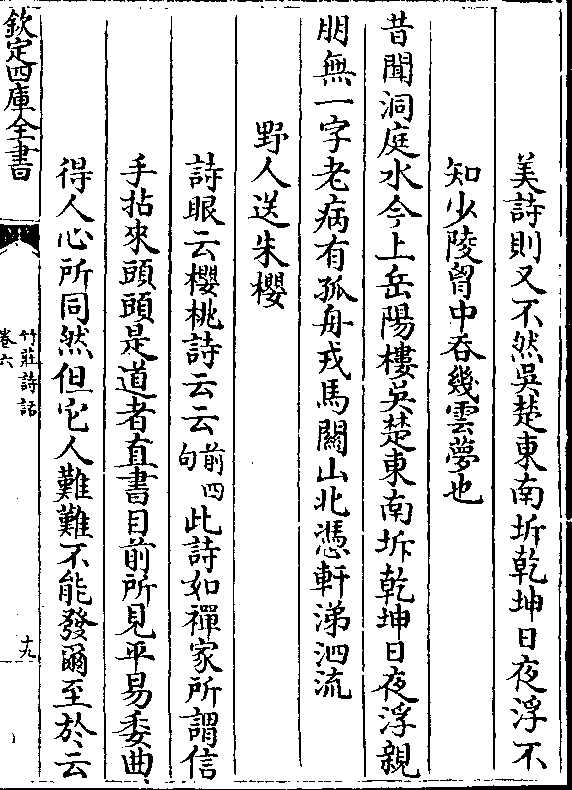 美詩則又不然吳楚東南坼乾坤日夜浮不
知少陵胷中吞幾雲夢也
昔聞洞庭水今上岳陽樓吳楚東南坼乾坤日夜浮親
朋無一字老病有孤舟戎馬關山北憑軒涕泗流
野人送朱櫻
詩眼云櫻桃詩云云前四句此詩如禪家所謂信
手拈來頭頭是道者直書目前所見平易委曲
得人心所同然但它人艱難不能發爾至於云
欽定四庫全書
竹莊詩話
卷六
十九